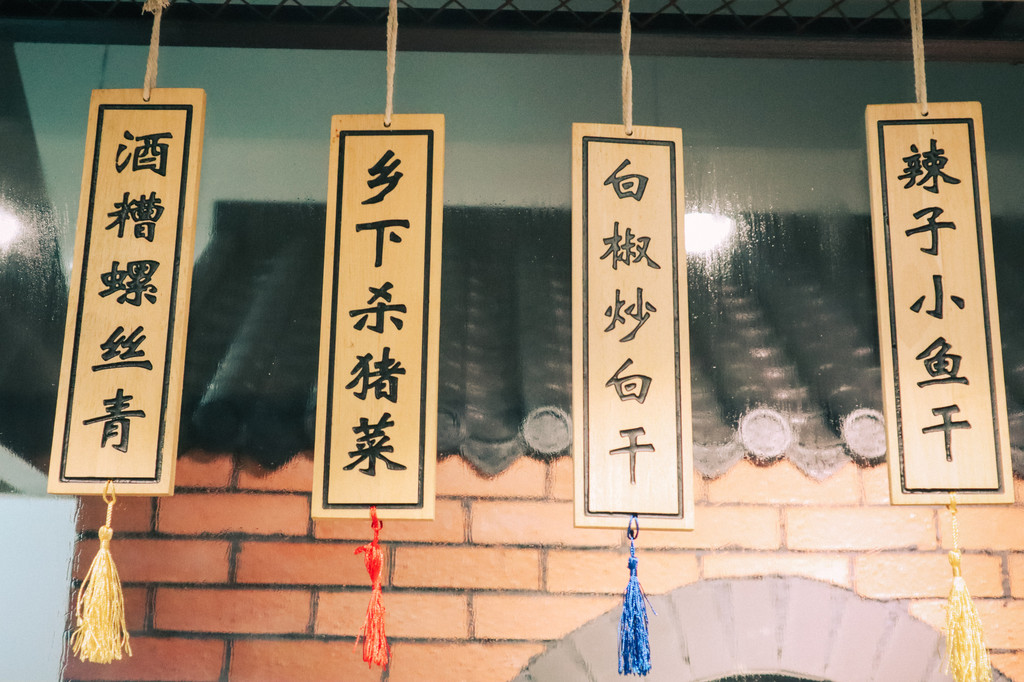 酒糟螺丝青
乡下杀猪菜
白椒炒白干
辣子小鱼干